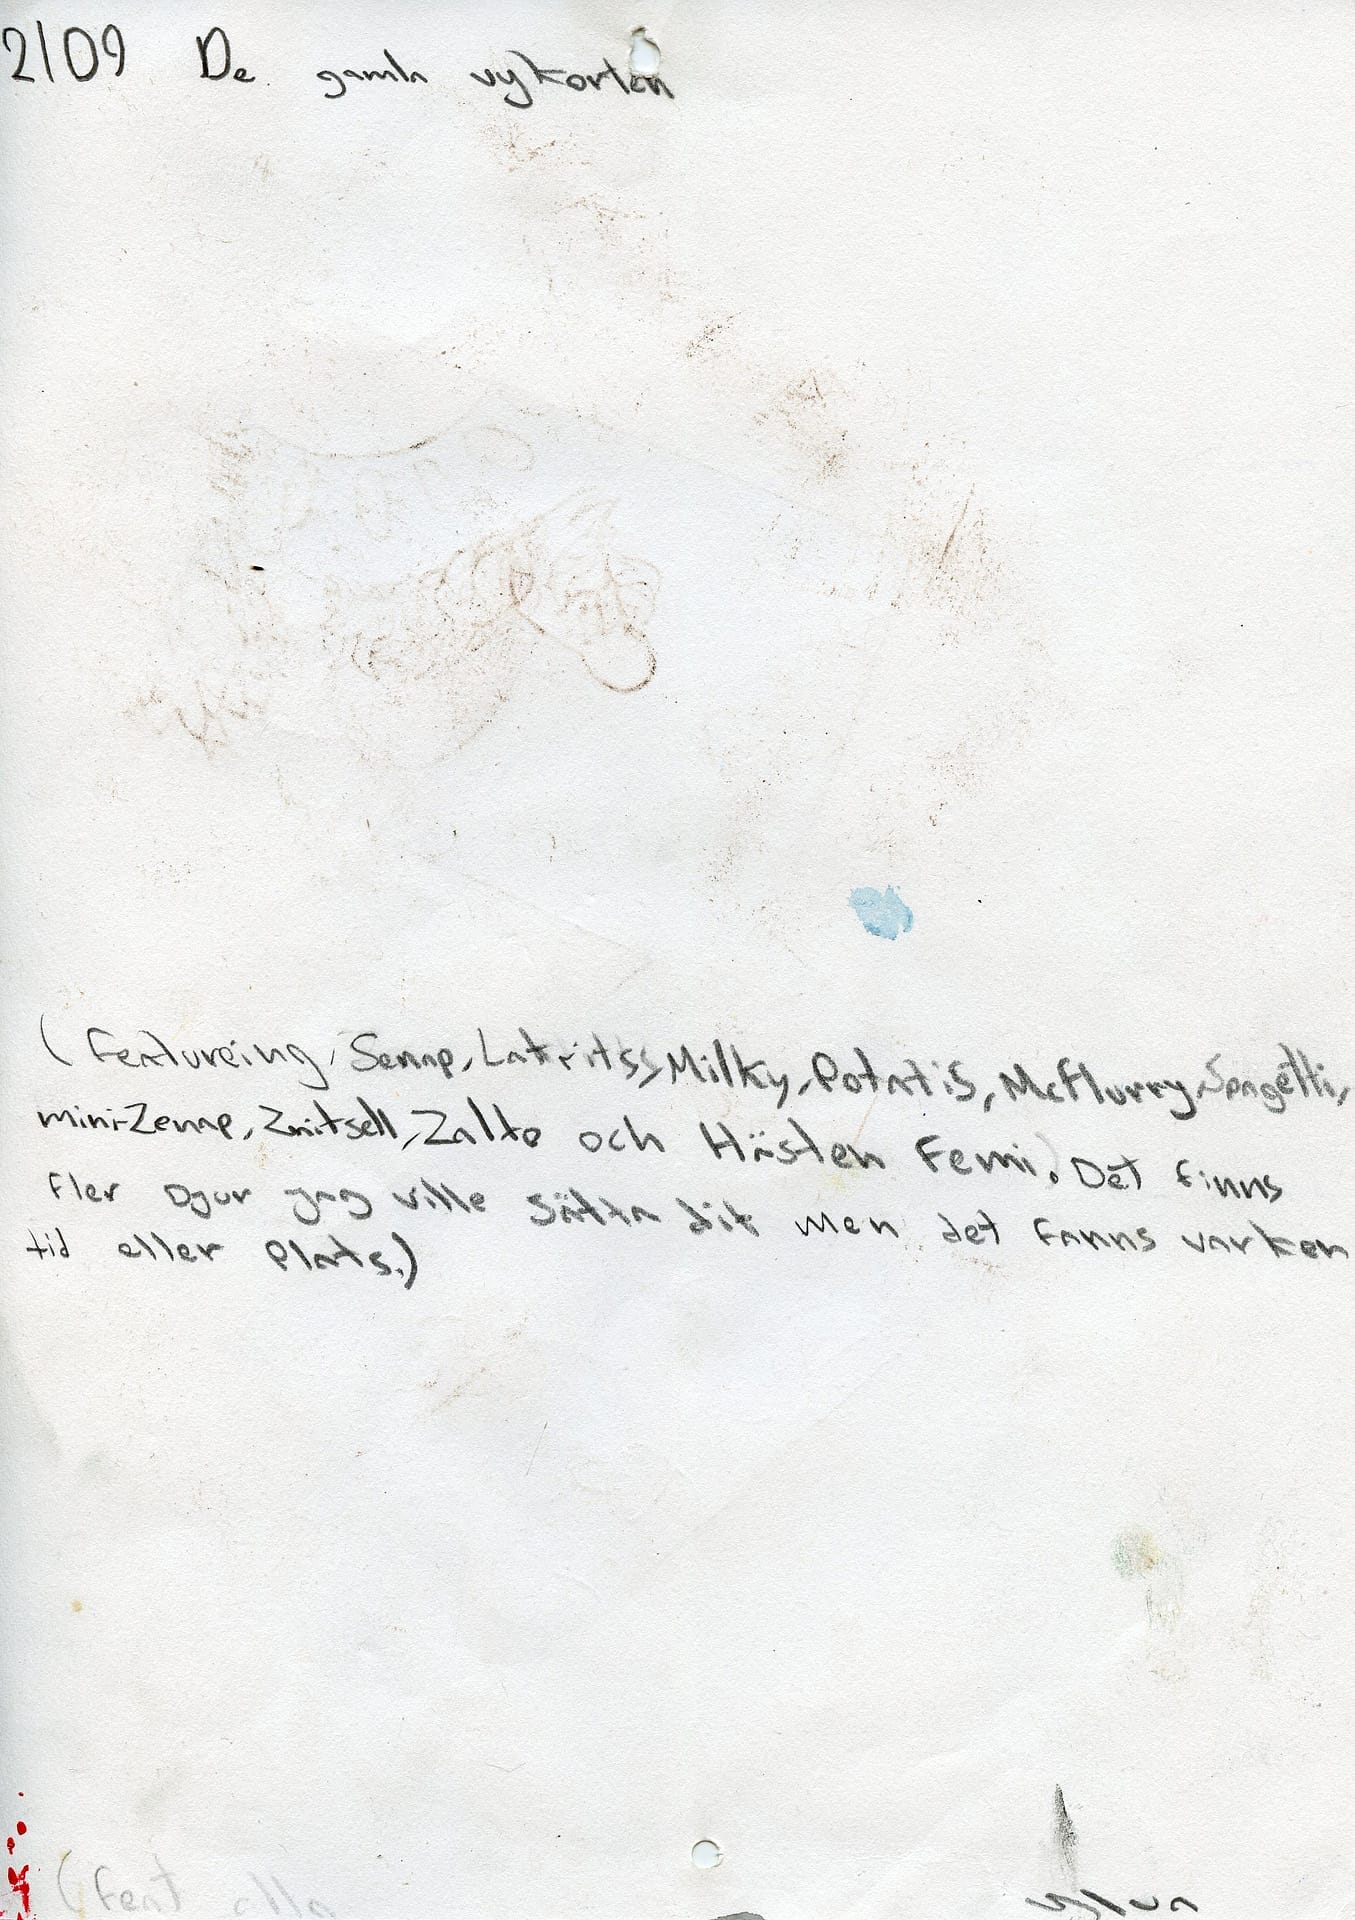 2109 De gamla vykorten
(Featureing, Senap, Lakritss, Milky, Potatis, Mcflurry, Spagetti,
mini-Zenap, Znitsell, Zalto och Hästen Femi. Det finns
fler Djur jag ville sätta dit men det fanns varken
tid eller Plats.)
(feat alla